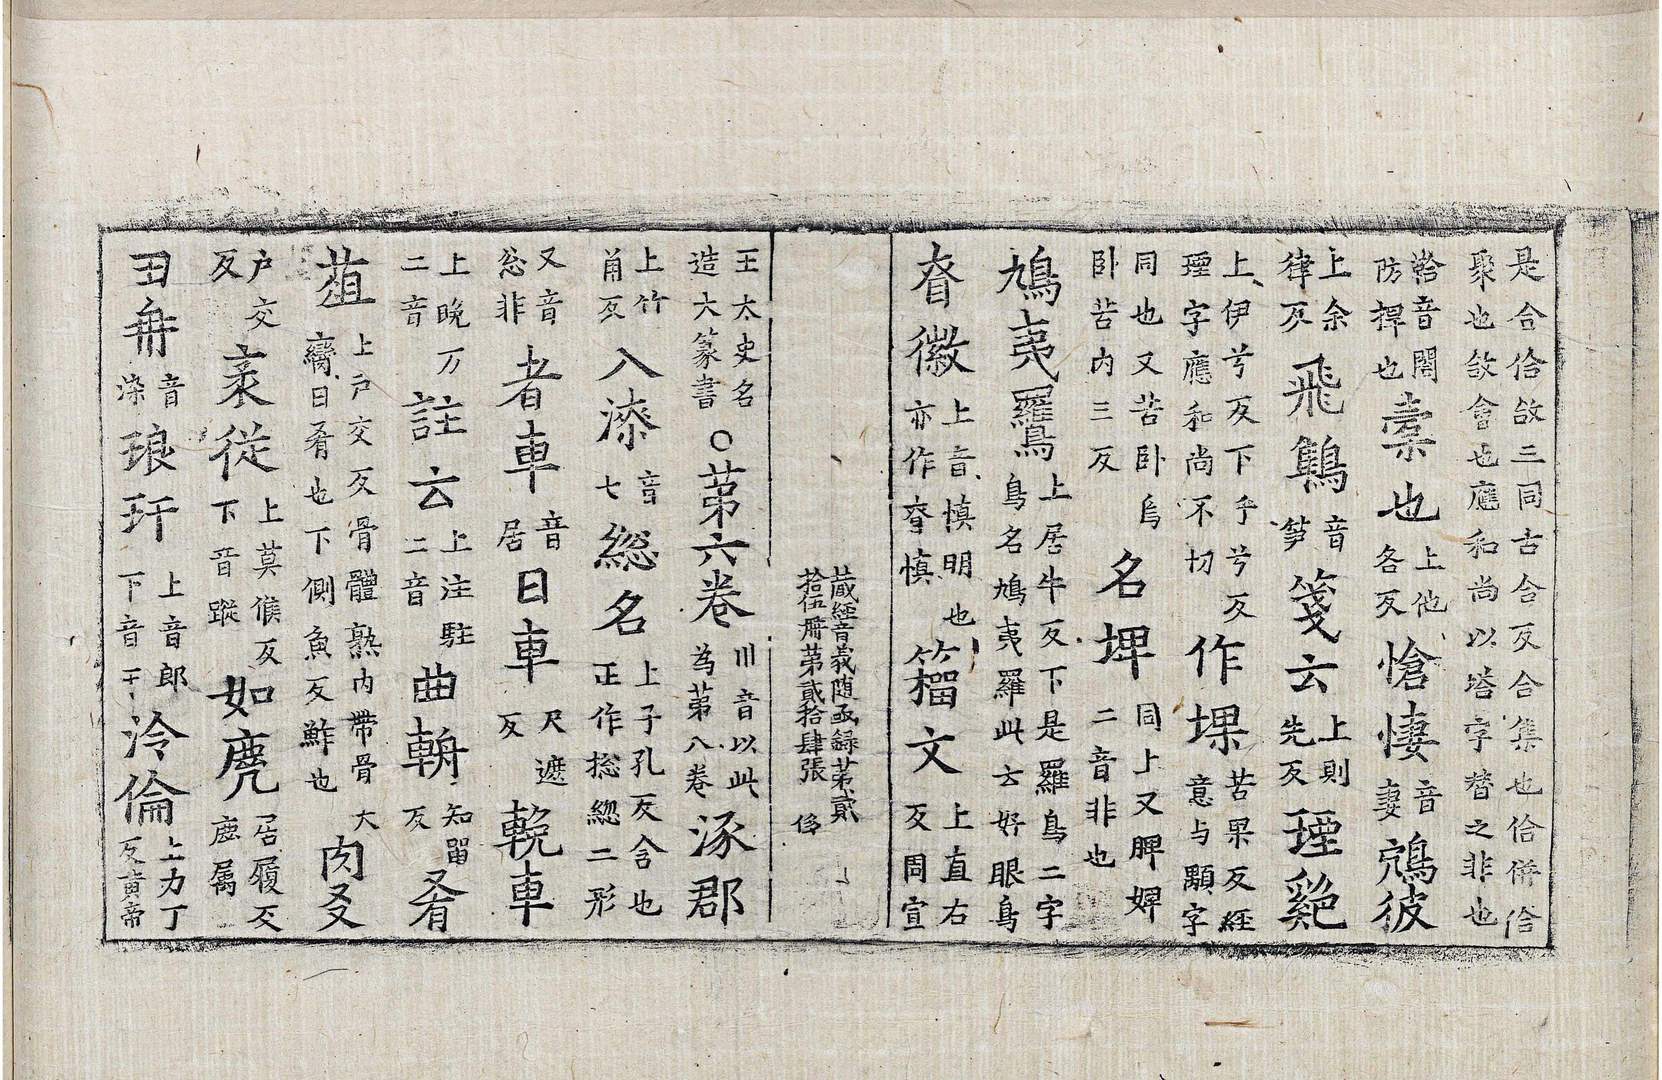 是合佮敆三同古合反合集也佮併佮
聚也敆會也應和尚以塔字替之非也
濌音閤
防捍也
橐也
上他
各反
愴悽
音
妻
鴻彼
上余
律反
飛鶽
音
笋
箋云
上則
先反
瑿
上伊兮反下乎兮反
瑿字應和尚不切
作堁
苦果反經
意与顆字
同也又苦卧烏
卧苦内三反
名埤
同上又脾婢
二音非也
鳩夷羅鳥
上居牛反下是羅鳥二字
鳥名鳩夷羅此云好眼鳥
昚徽
上音慎明也
亦作昚慎
籀文
上直右
反周宣
藏經音義随函錄第貳
拾伍册第貳拾肆張
王太史名
造大篆書
○第六卷
川音以此
為第八卷
涿郡
上竹
角反
入漆
音
七
緫名
上子孔反合也
正作捴緫二形
又音
忩非
者車
音
居
曰車
尺遮
反
輓車
上晚万
二音
註云
上注駐
二音
曲輈
知留
反
肴
上戶交反骨體熟肉帶骨
臠曰肴也下側魚反鮓也
大
肉叉
戶交
反
袤從
上莫候反
下音蹤
如麂
居履反
麈属
田冉
音
染
琅玕
上音郎
下音干
泠倫
上力丁
反黄帝